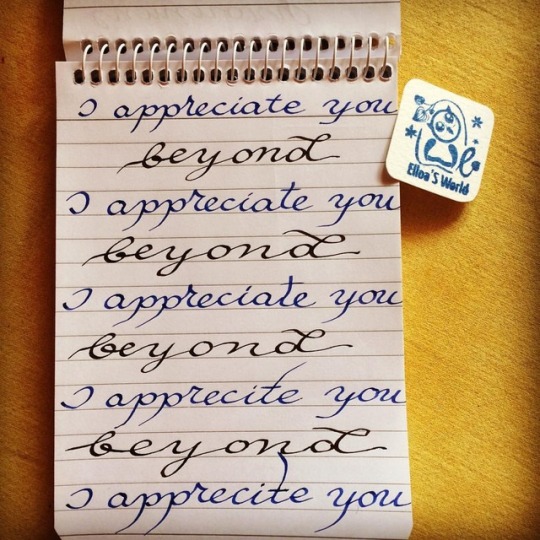 I appreciate you
beyond
I appreciate you
beyond
I appreciate you
beyond
I apprecite you
beyond
I apprecite you
Elloa'S World